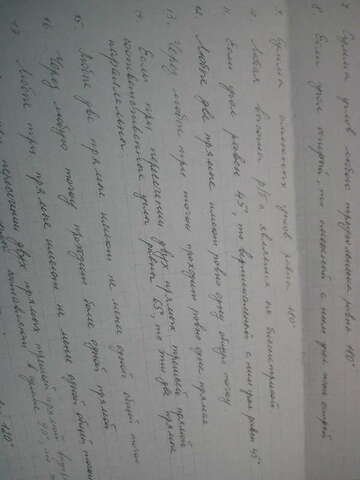 7 Сумма углов любого треугольника равна 180°
8 Если угол острый, то смежный с ним угол тоже острый
9 Сумма смежных углов равна 180°
10 Любая высота р/б Δ является его биссектрисой
11 Если угол равен 45°, то вертикальный с ним угол равен 45°
12 Любые две прямые имеют ровно одну общую точку
13 Через любые три точки проходит ровно одна прямая
14 Если при пересечении двух прямых третьей прямой
соответственные углы равны 65°, то эти две прямые
параллельны
15 Любые две прямые имеют не менее одной общей точки
16 Через любую точку проходит более одной прямой
17 Любые три прямые имеют не менее одной общей точки
пересечении двух прямых третьей прямой
составляют в сумме
180°